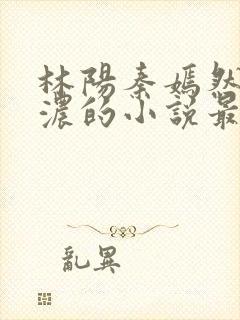 林陽秦嫣然
濃的小説最
亂異